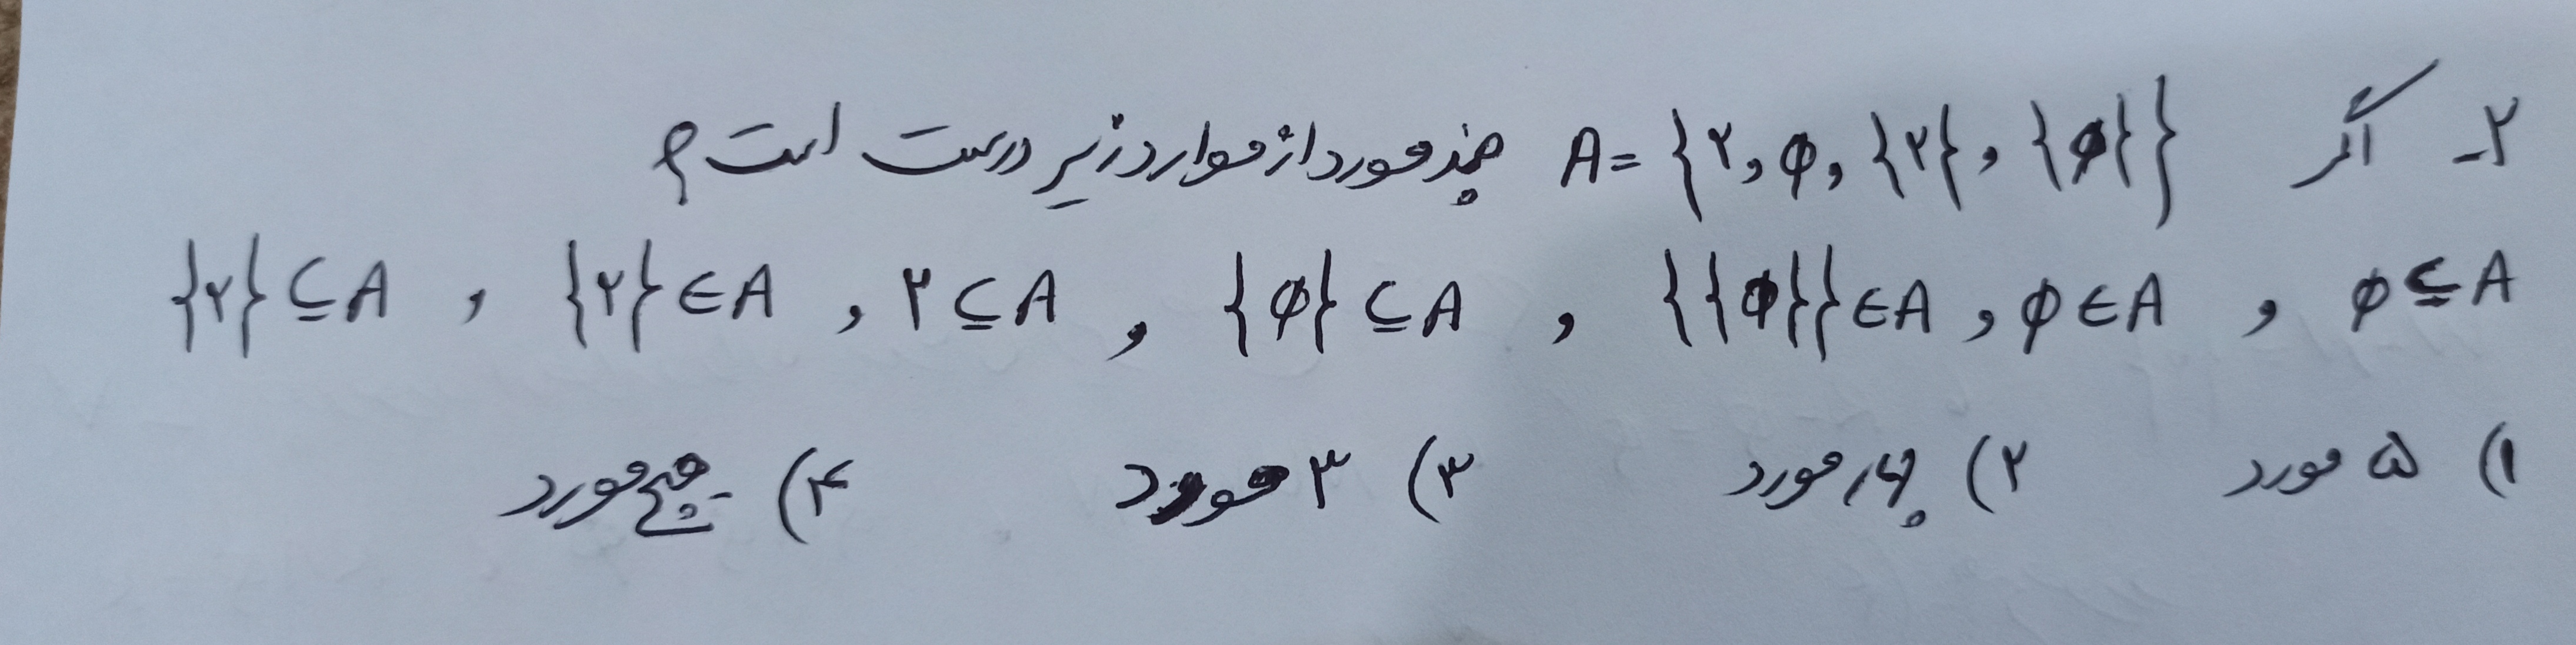 ۲- اگر A = {۲, φ, {۲}, {φ}} چند مورد از موارد زیر درست است؟
φ ⊆ A , φ ∈ A , {{φ}} ∈ A , {φ} ⊆ A , ۲ ⊆ A , {۲} ∈ A , {۲} ⊆ A
۱) ۵ مورد ۲) چهار مورد ۳) ۳ مورد ۴) هیچ مورد